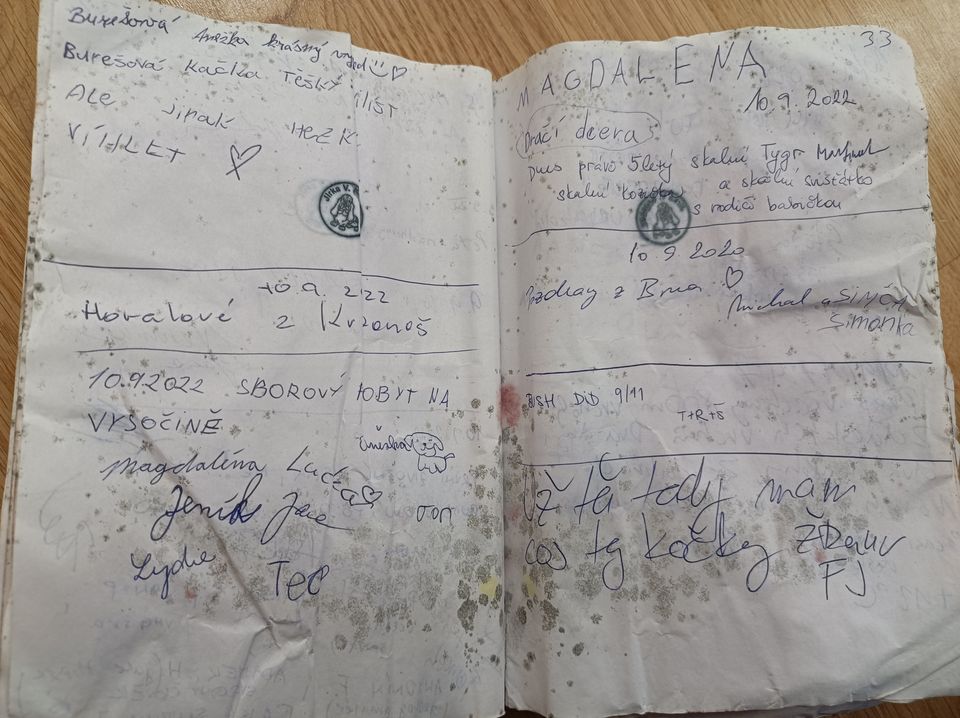 Burešová Anežka krásný výhled
Burešová Kačka Těšký ilist
Ale jinak HEZK.
VÍHLET
Jirka V.
10.9.222
Horalové z Krkonoš
10.9.2022 SBOROVÝ POBYT NA
VYSOČINĚ
Anežka
Magdaléna Lucča
Jeník Jana
Lydie
33
MAGDALENA
10.9.2022
Dračí dcera
Dnes právo 5letý skalní Tygr
skalní a skalní svišťátko
s rodiči babičkou
10.9 2020
Pozdravy z Brna
Michal a SIMČA
Simonka
BSH DID 9/11
T+R+Š
Už tě tady mám
cos ty kočky
FJ